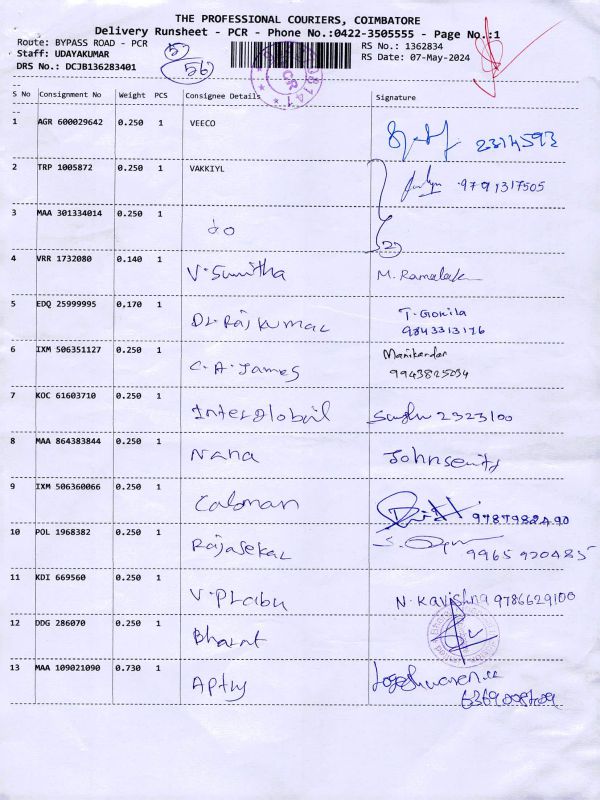 THE PROFESSIONAL COURIERS, COIMBATORE
Delivery Runsheet - PCR - Phone No.:0422-3505555 - Page No.:1
Route: BYPASS ROAD - PCR
RS No.: 1362834
Staff: UDAYAKUMAR
RS Date: 07-May-2024
DRS No.: DCJB136283401
56
S No Consignment No Weight PCS Consignee Details Signature
1 AGR 600029642 0.250 1 VEECO 2314593
2 TRP 1005872 0.250 1 VAKKIYL 9791317505
3 MAA 301334014 0.250 1 do
4 VRR 1732080 0.140 1 V. Sumitha M. Ramalak
5 EDQ 25999995 0.170 1 Dr. Rajkumar T. Gokila
9843313176
6 IXM 506351127 0.250 1 C. A. James Manikandan
9943825034
7 KOC 61603710 0.250 1 Interglobail 2323100
8 MAA 864383844 0.250 1 Nana
9 IXM 506360066 0.250 1 9787982490
10 POL 1968382 0.250 1 Rajasekar S.
9965920485
11 KDI 669560 0.250 1 V. Prabu N. Kavishna 9786629100
12 DDG 286070 0.250 1 Bharat
13 MAA 109021090 0.730 1